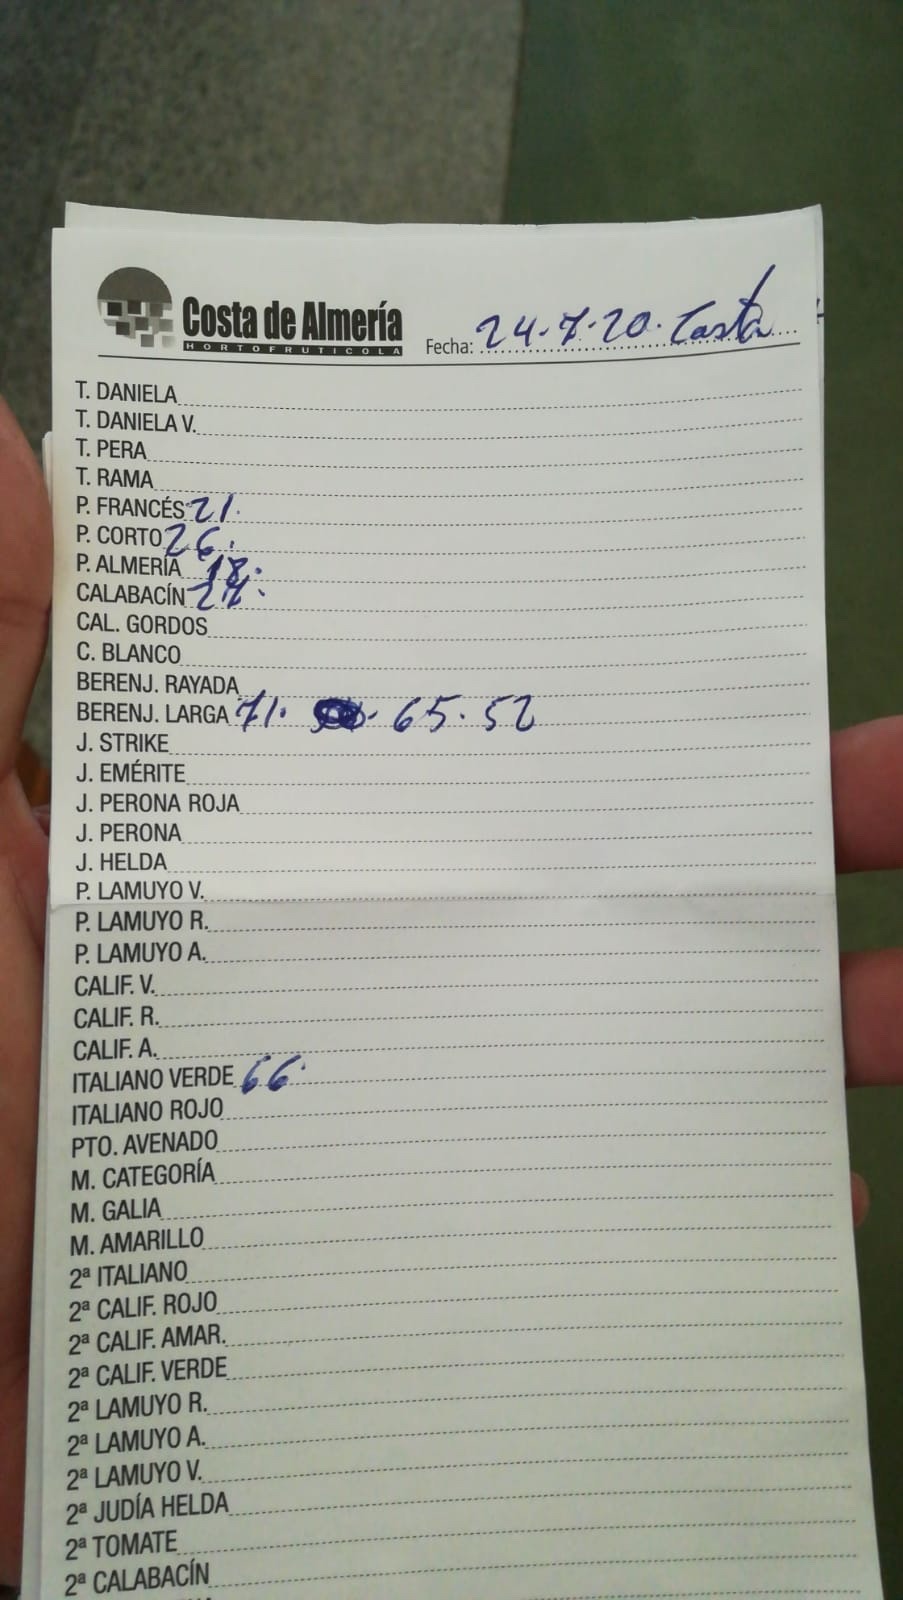 Costa de Almería
HORTOFRUTICOLA
Fecha: 24.7.20. Costa
T. DANIELA
T. DANIELA V.
T. PERA
T. RAMA
P. FRANCÉS 21.
P. CORTO 26.
P. ALMERÍA 18.
CALABACÍN
CAL. GORDOS
C. BLANCO
BERENJ. RAYADA
BERENJ. LARGA 71. 65. 52
J. STRIKE
J. EMÉRITE
J. PERONA ROJA
J. PERONA
J. HELDA
P. LAMUYO V.
P. LAMUYO R.
P. LAMUYO A.
CALIF. V.
CALIF. R.
CALIF. A.
ITALIANO VERDE 66.
ITALIANO ROJO
PTO. AVENADO
M. CATEGORÍA
M. GALIA
M. AMARILLO
2ª ITALIANO
2ª CALIF. ROJO
2ª CALIF. AMAR.
2ª CALIF. VERDE
2ª LAMUYO R.
2ª LAMUYO A.
2ª LAMUYO V.
2ª JUDÍA HELDA
2ª TOMATE
2ª CALABACÍN